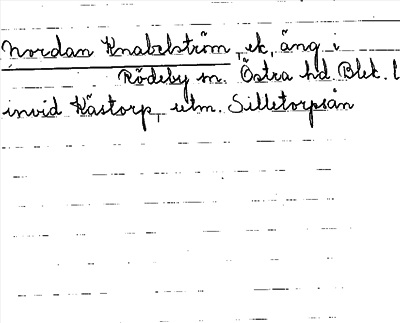 Nordan Knabelström, ek, äng i
Rödeby sn. Östra hd. Blek. l
invid Kåstorp, utm. Silletorpsån